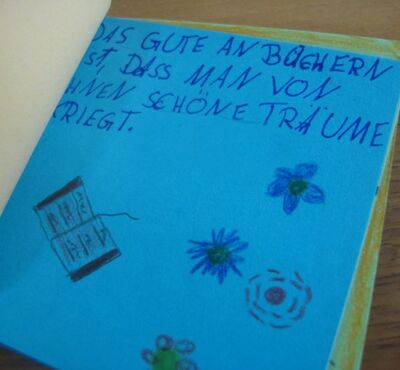 DAS GUTE AN BÜCHERN
IST, DASS MAN VON
IHNEN SCHÖNE TRÄUME
KRIEGT.